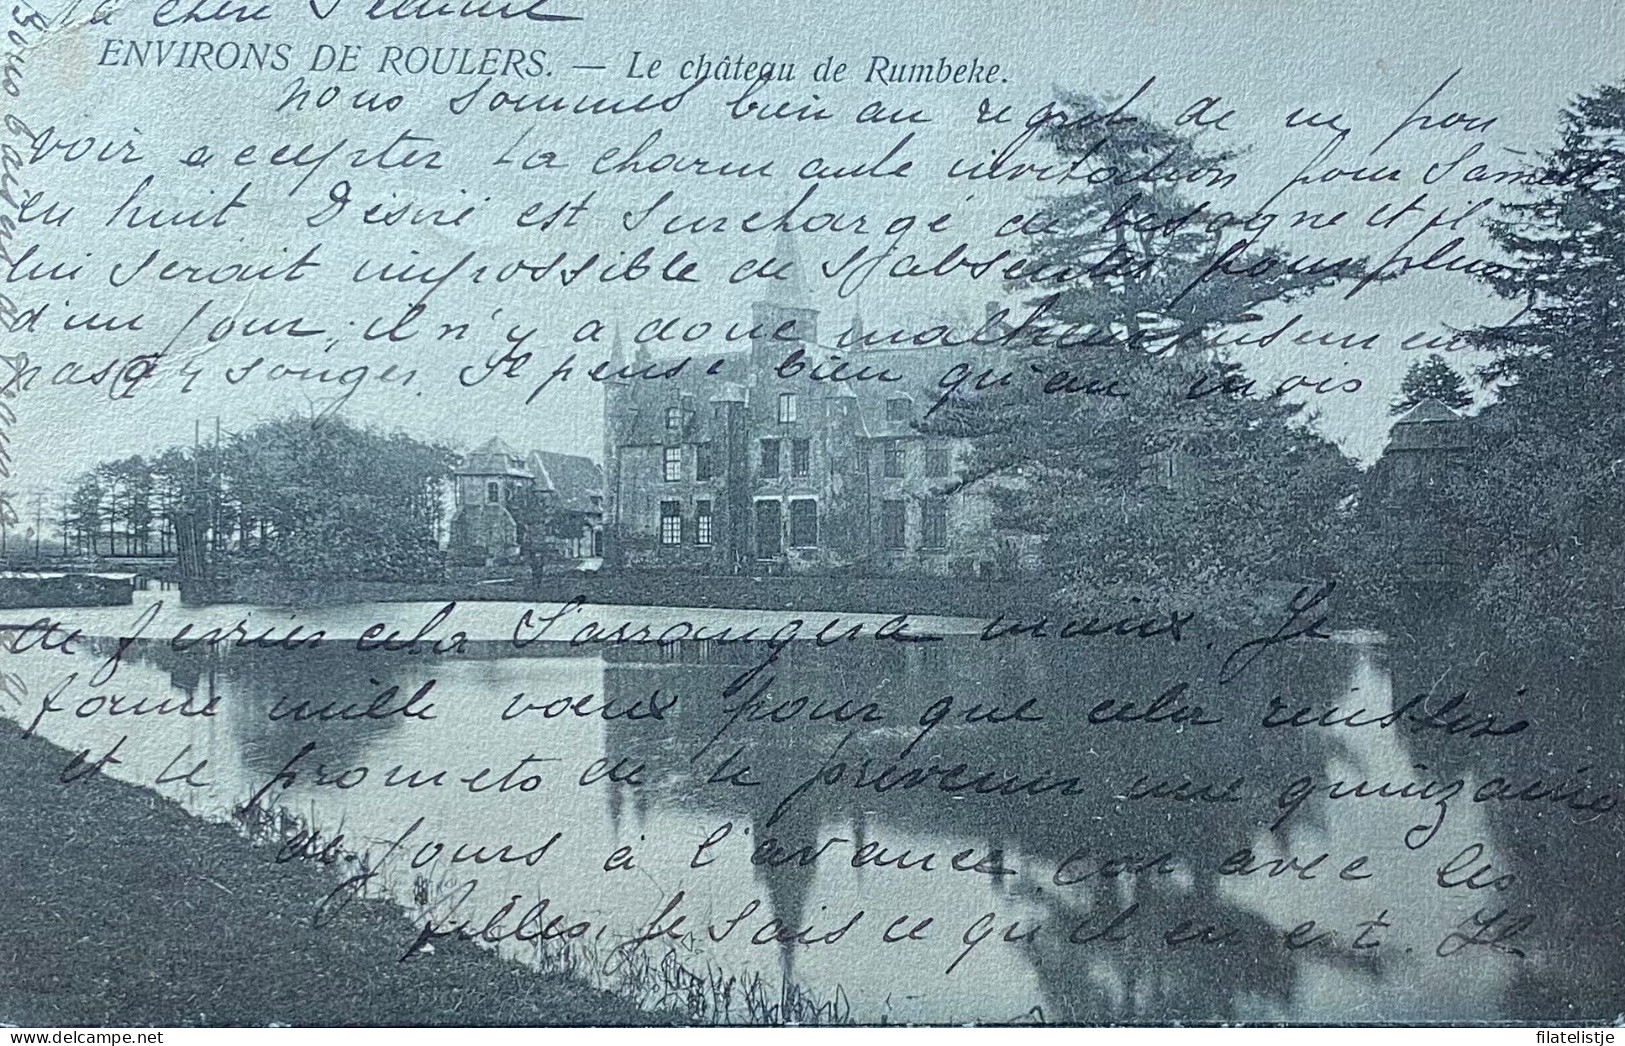 Ma chère
ENVIRONS DE ROULERS. — Le château de Rumbeke.
nous sommes bien au regret de ne pou
voir accepter ta charmante invitation pour Samedi
en huit Désiré est surchargé de besogne et il
lui serait impossible de s'absenter pour plus
d'un jour, il n'y a donc malheureusement
pas à y songer. Je pense bien qu'au mois
de ferrier cela s'arrangera mieux. Je
forme mille vœux pour que cela réussisse
et te promets de te prévenir une quinzaine
de jours à l'avance, car avec les
filles, je sais ce qu'il en est. Je
Bons baisers
filatelistje